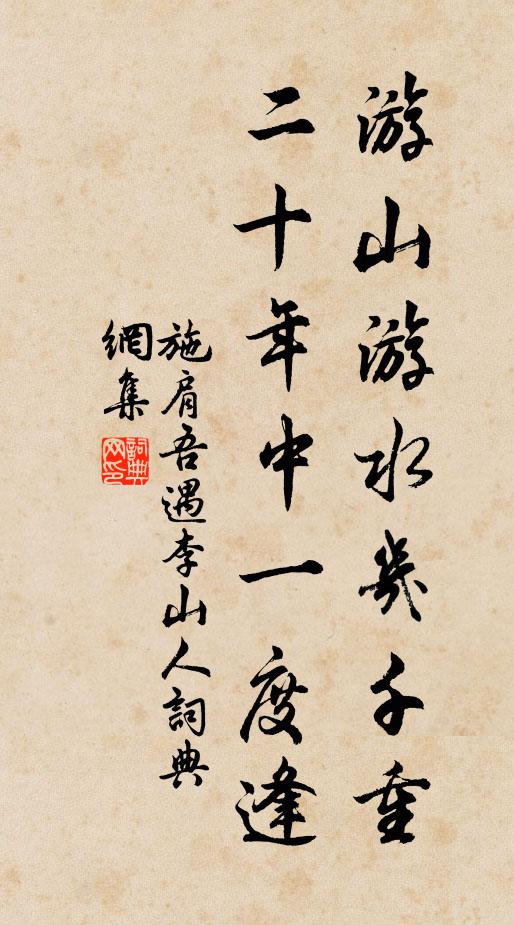 游山游水幾千重
二十年中一度逢
施肩吾遇李山人詞典
網集
詞典
网印